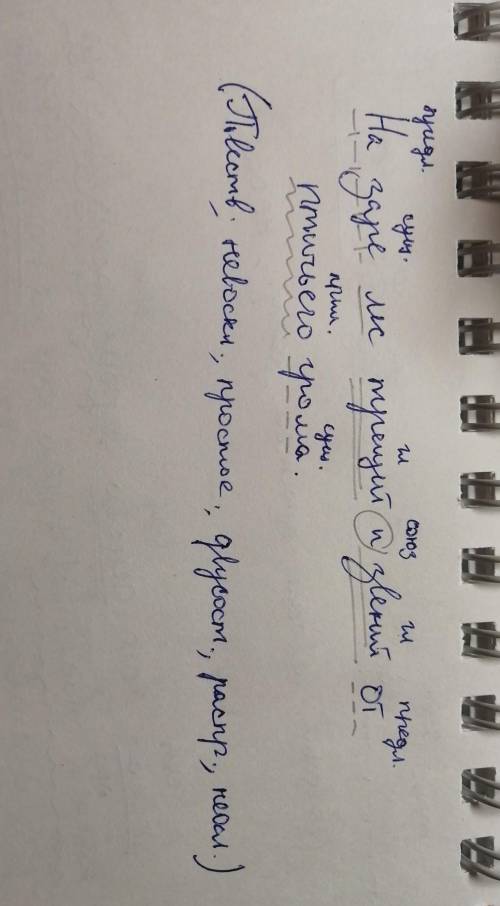 предл. сущ. гл союз гл предл.
На заре лес трещит и звенит от
прил. сущ.
птичьего грома.
(Повеств., невоскл., простое, двусост., распр., неосл.)